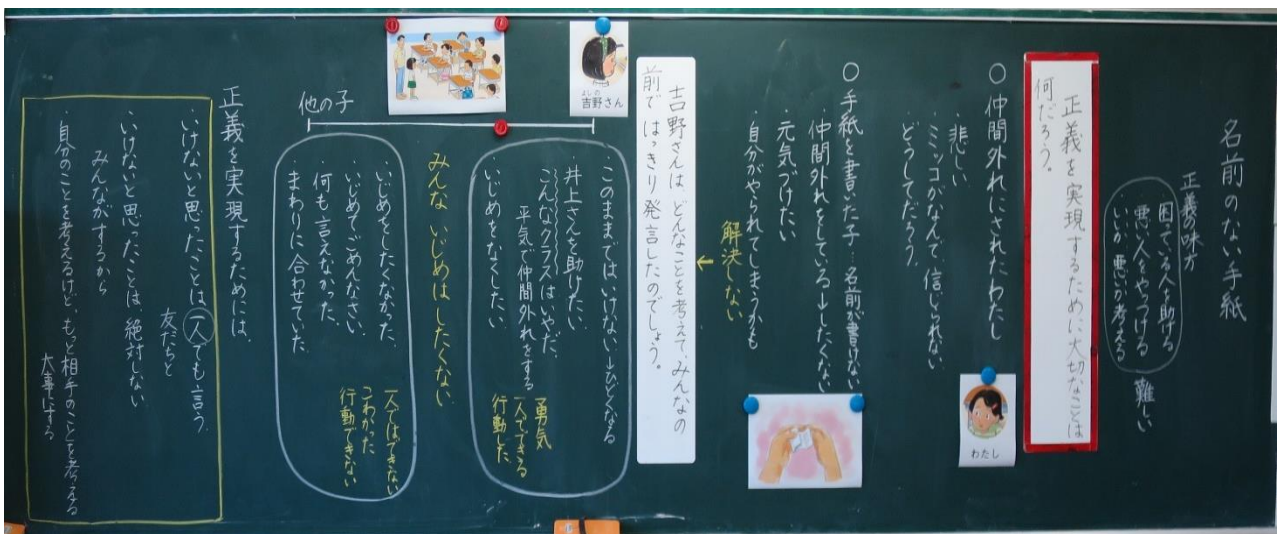 名前のない手紙
正義の味方
困っている人を助ける
悪い人をやっつける
いいか悪いか考える
難しい
正義を実現するために大切なことは
何だろう。
○仲間外れにされたわたし
・悲しい
・ミッコがなんで、信じられない
・どうしてだろう。
わたし
○手紙を書いた子…名前が書けない
・仲間外れをしている→したくない
・元気づけたい
・自分がやられてしまうかも
解決しない
←
吉野さんは、どんなことを考えて、みんなの
前ではっきり発言したのでしょう。
よしの
吉野さん
・このままではいけない→ひどくなる
・井上さんを助けたい
・こんなクラスはいやだ、
平気で仲間外れをする
・いじめをなくしたい
勇気
一人でできる
行動した
みんな いじめは したくない
他の子
・いじめをしたくなかった、
・いじめてごめんなさい、
・何も言えなかった、
・まわりに合わせていた
一人ではできない
こわかった
行動できない
正義を実現するためには、
・いけないと思ったことは一人でも言う
友だちと
・いけないと思ったことは、絶対しない
みんながするから
・自分のことを考えるけど、もっと相手のことを考える
大事にする